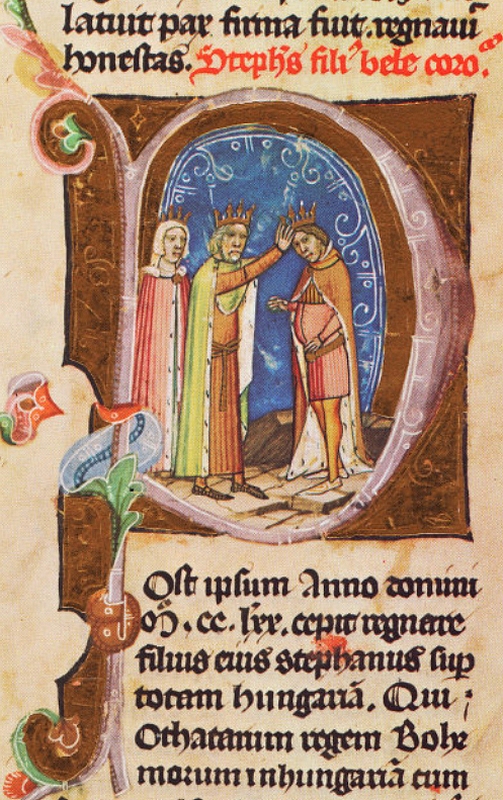 latuit pax firma fuit. regnaui
honestas. Stephs fili' bele coro.
Post ipsum Anno domini
M. cc. lxx. cepit regnare
filius eius stephanus sup
totam hungariā. Qui
Othacarum regem Bohe
morum in hungariā cum